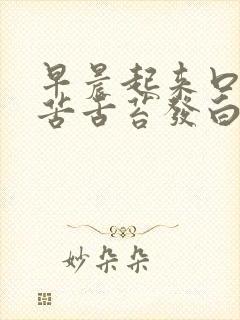 早晨起来口
苦舌苔發白
妙朵朵